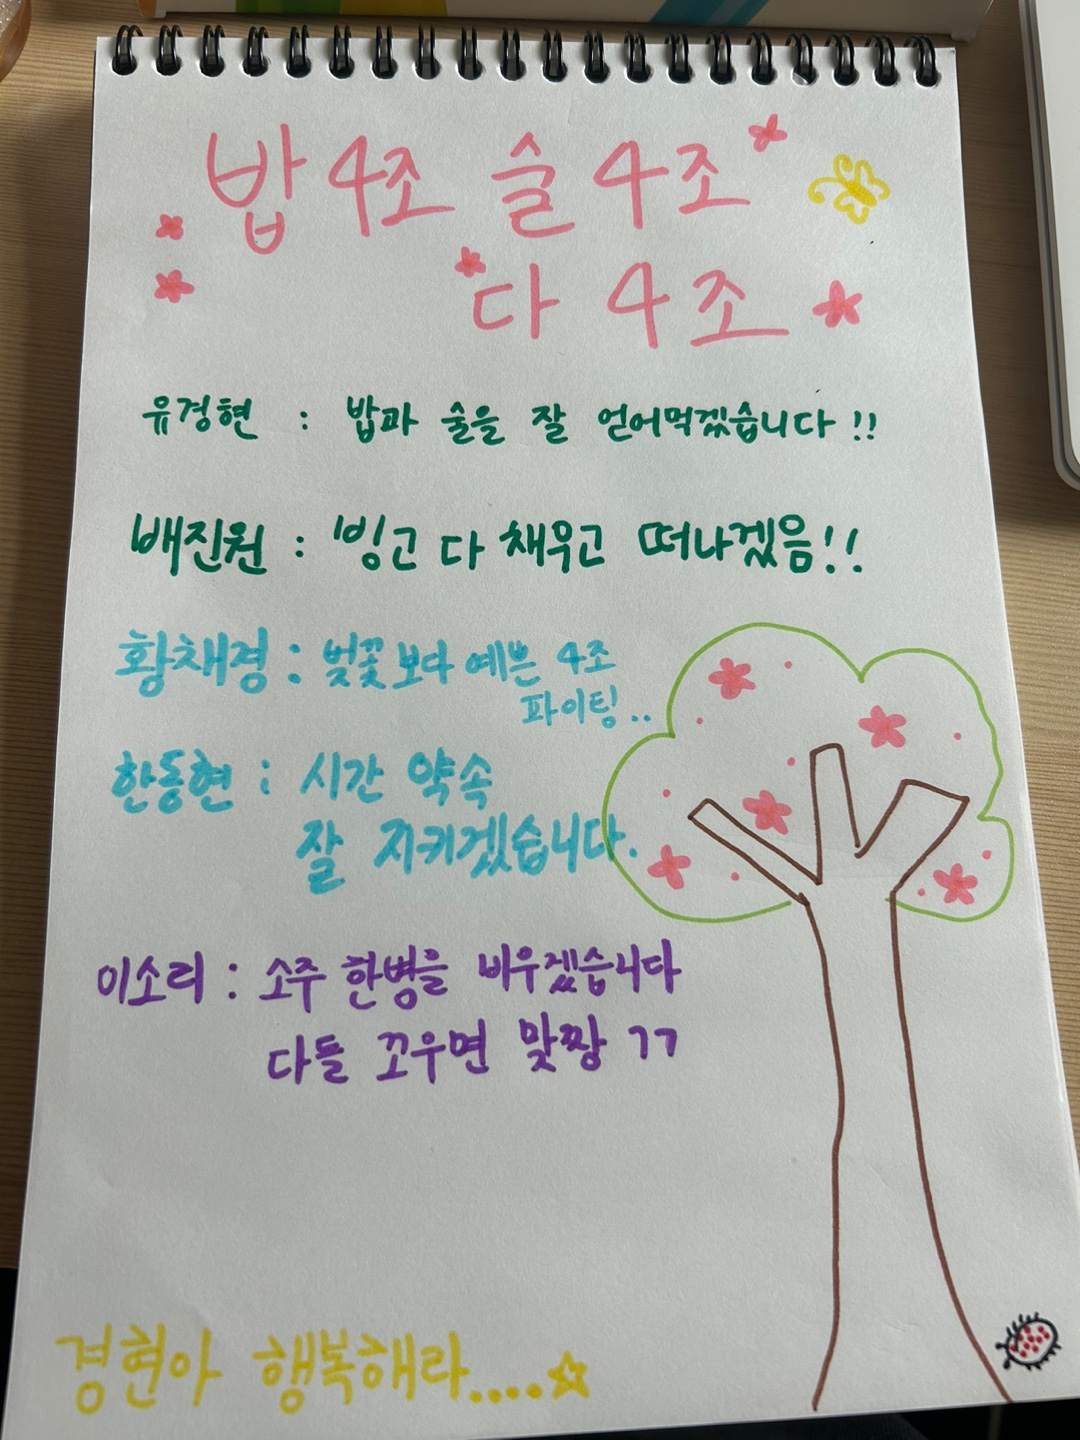 밥 4조 술 4조
다 4조
유경현 : 밥과 술을 잘 얻어먹겠습니다 !!
배진원 : 빙고 다 채우고 떠나겠음!!
황채경 : 벚꽃보다 예쁜 4조
파이팅..
한동현 : 시간 약속
잘 지키겠습니다.
이소리 : 소주 한병을 비우겠습니다
다들 꼬우면 맞짱 ㄱㄱ
경현아 행복해라....☆